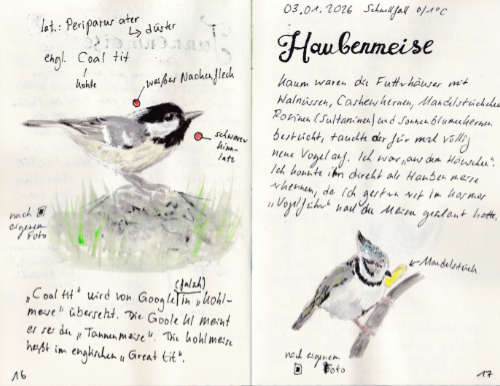 lat.: Periparus ater
↳ düster
engl. Coal tit
Kohle
weißer Nackenfleck
schwarzer
Kinn-
latz
nach
eigenem
Foto
(falsch)
„Coal tit" wird von Google in „Kohl-
meise" übersetzt. Die Goole KI meint
es sei die „Tannenmeise". Die Kohlmeise
heißt im englischen „Great tit".
16
03.01.2026 Schneefall 0/1°C
Haubenmeise
Kaum waren die Futterhäuser mit
Walnüssen, Cashewkernen, Mandelstückchen
Rosinen (Sultaninen) und Sonnenblumenkernen
bestückt, tauchte der für mich völlig
neue Vogel auf. Ich war „aus dem Häuschen".
Ich konnte ihn direkt als Haubenmeise
erkennen, da ich gestern erst im Kosmos
„Vogelführer" nach den Meisen geschaut hatte.
Mandelstück
nach
eigenem
Foto
17